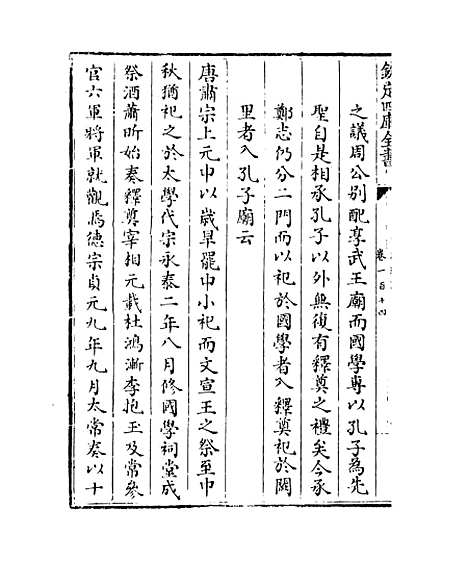 欽定四庫全書
卷一百十四
之議周公别配享武王廟而國學専以孔子為先
聖自是相承孔子以外無復有釋奠之禮矣今承
鄭志仍分二門而以祀於國學者入釋奠祀於闕
里者入孔子廟云
唐肅宗上元中以嵗旱罷中小祀而文宣王之祭至中
秋猶祀之於太學代宗永泰二年八月修國學祠堂成
祭酒蕭昕始奏釋奠宰相元載杜鴻漸李抱玉及常參
官六軍將軍就觀焉德宗貞元九年九月太常奏以十